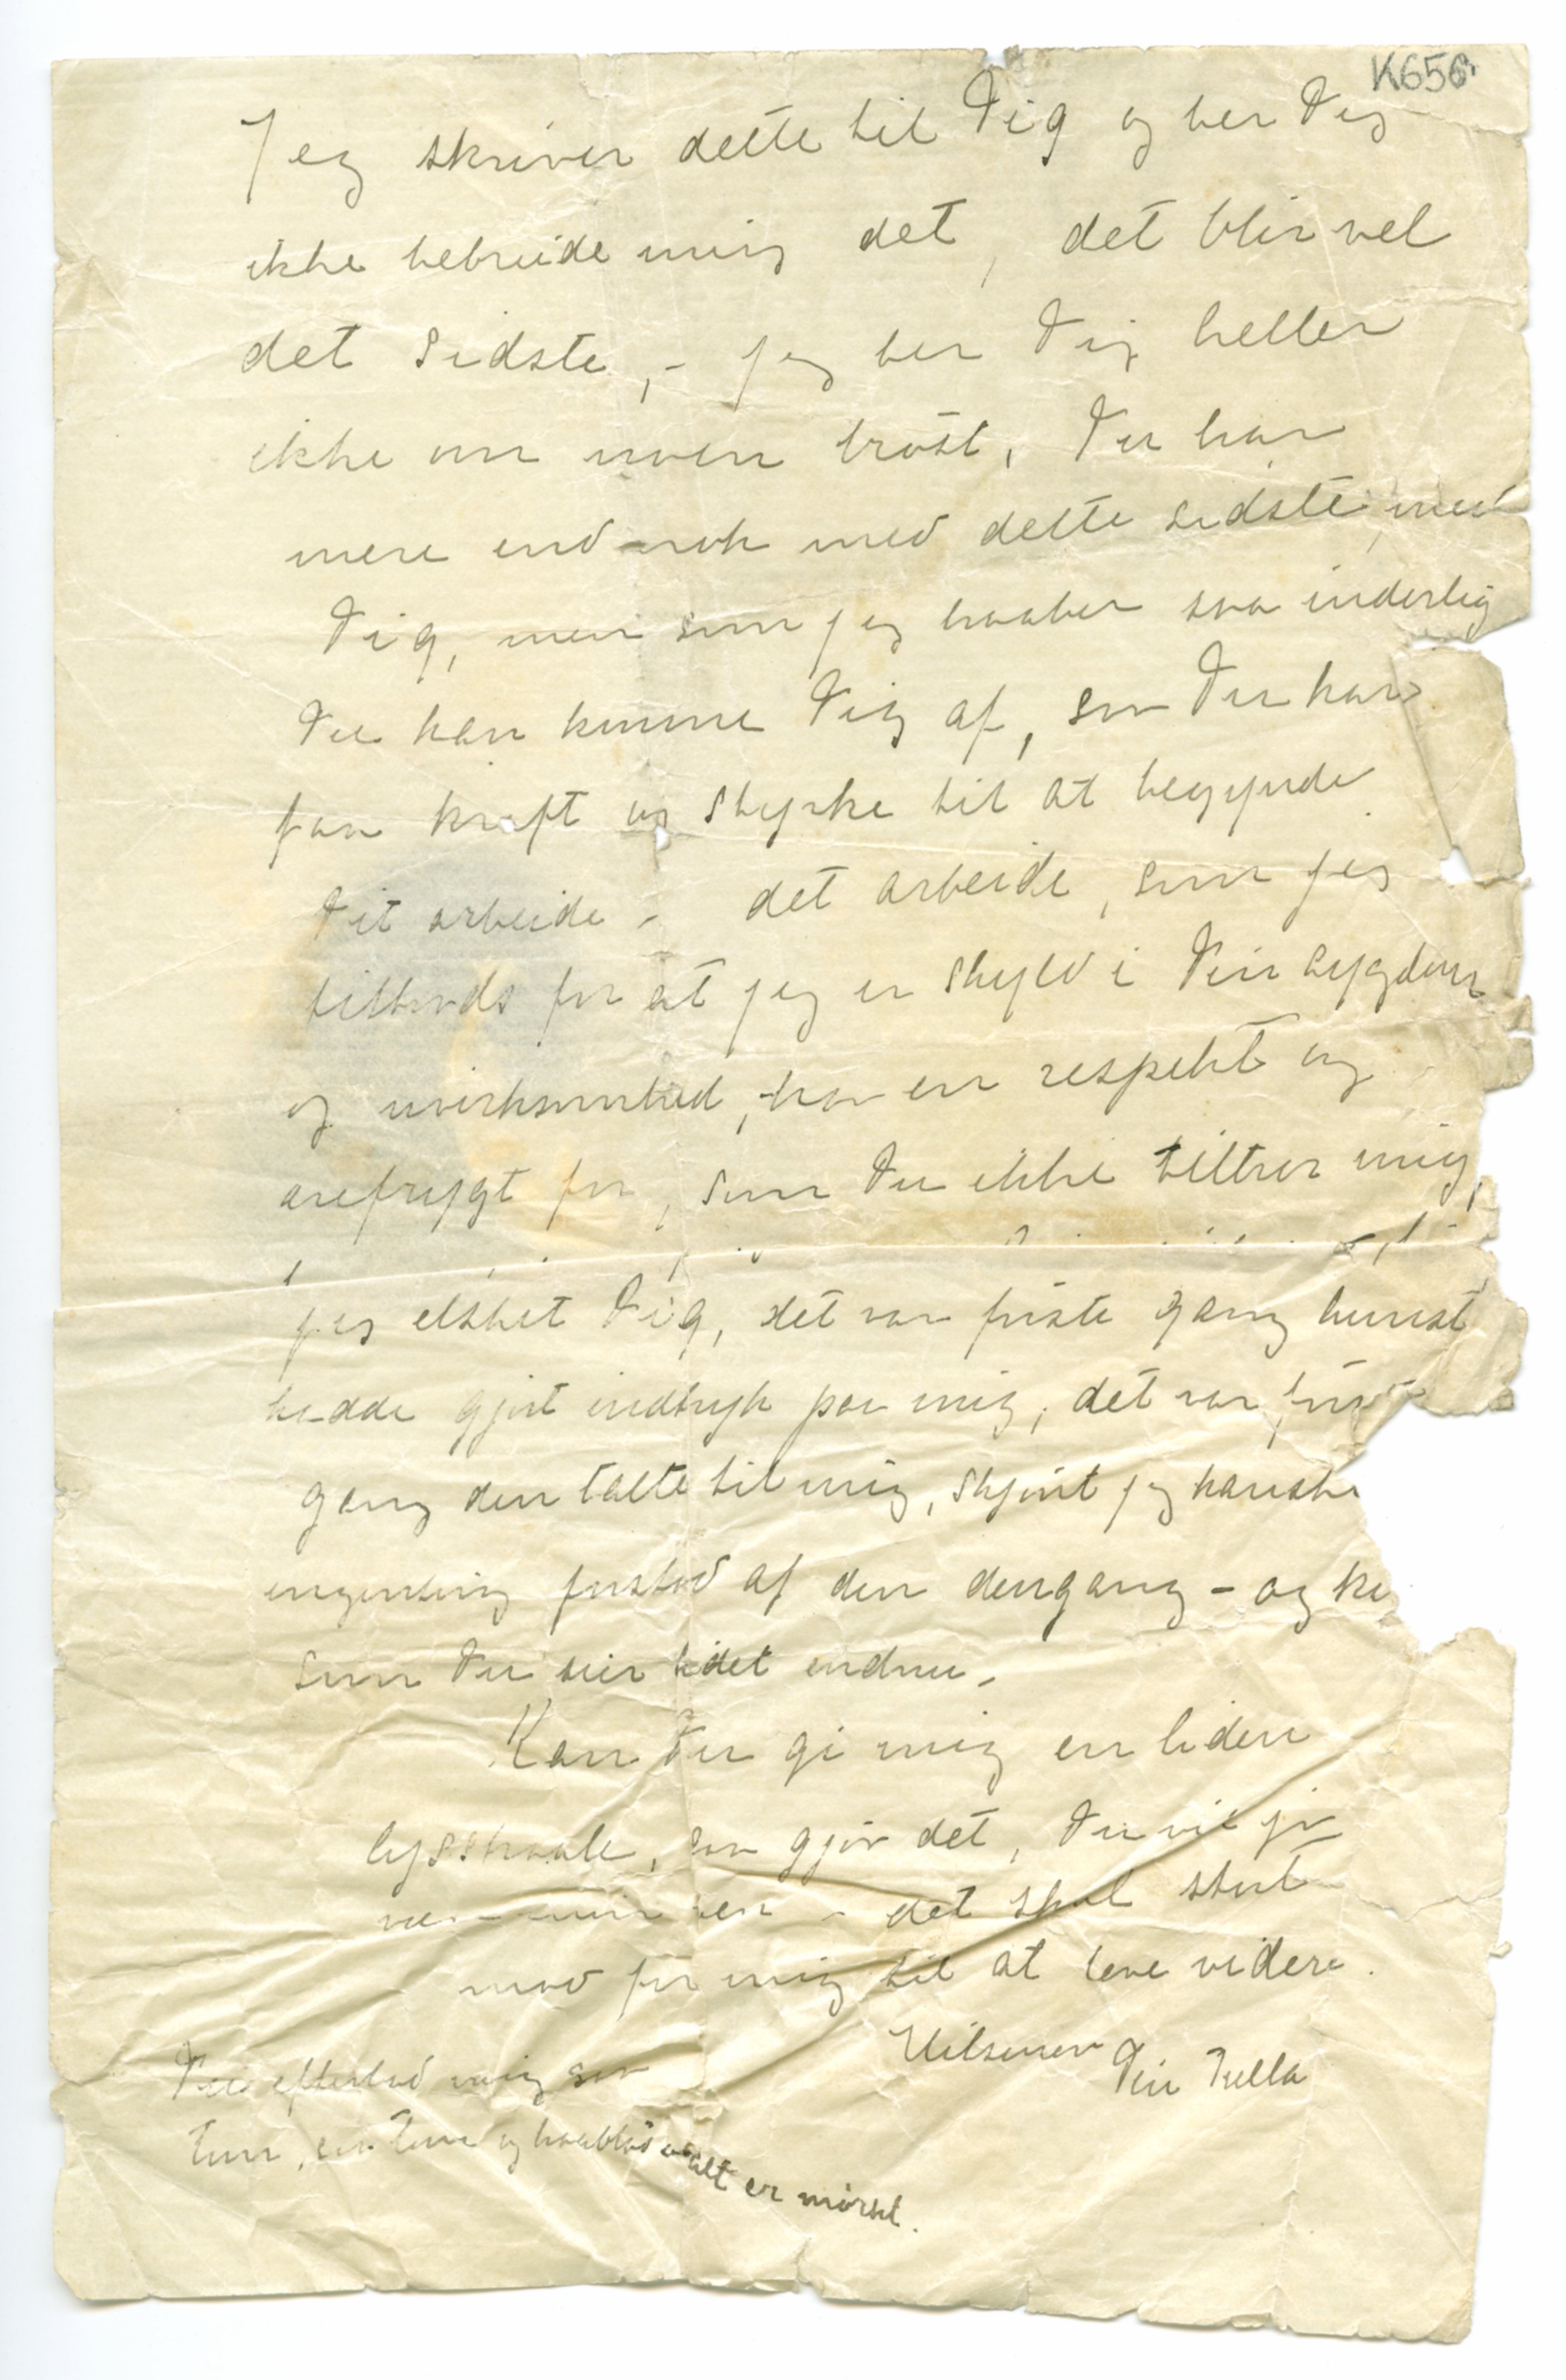 K656
Jeg skriver dette til Dig og ber Dig
ikke bebreide mig det, det blir vel
det sidste, - jeg ber Dig heller
ikke om noen trøst, Du har
mere end nok med dette sidste, med
Dig, men som jeg haaber saa inderlig
Du kan komme Dig af, saa Du kan
faa kraft og styrke til at begynde
Dit arbeide - det arbeide, som jeg
tiltrods for at jeg er skyld i Din sygdom
og uvirksomhed, har en respekt og
ærefrygt for, som Du ikke tiltror mig,
jeg elsket Dig, det var første gang kunst
hadde gjort indtryk paa mig, det var første
gang den talte til mig, skjønt jeg kanske
ingenting forstod af den dengang - og
som Du sier lidet endnu.
Kan Du gi mig en liden
lysstraale, saa gjør det, Du vil jo
være min ven - det skal stort
mod for mig til at leve videre.
Hilsener
Din Tulla
Du efterlod mig saa
tom, saa tom og haabløs alt er mørkt.